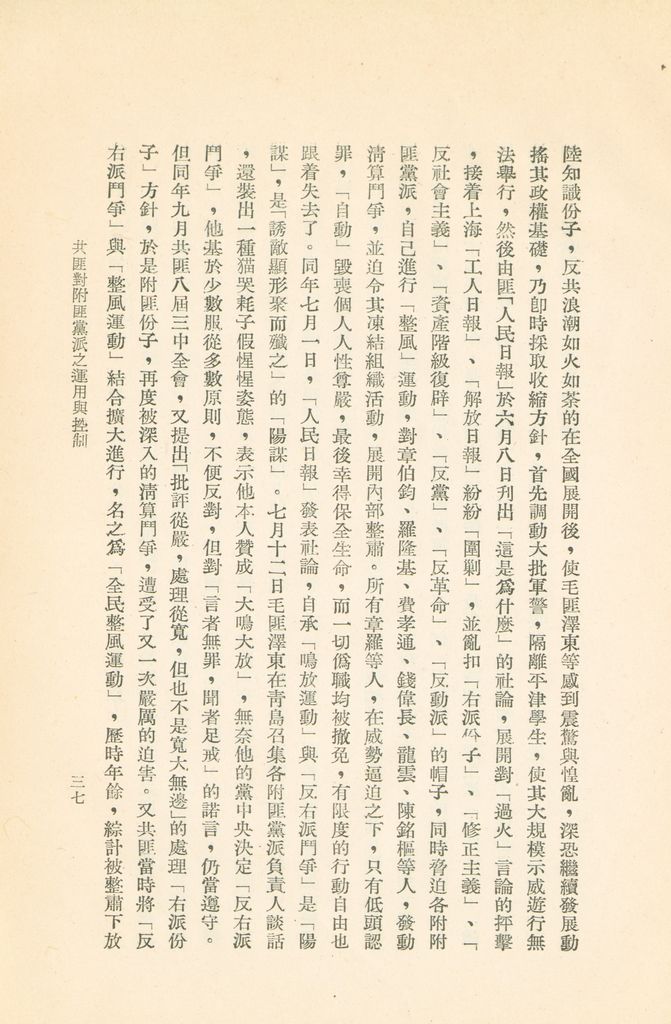 陸知識份子，反共浪潮如火如荼的在全國展開後，使毛匪澤東等感到震驚與惶亂，深恐繼續發展動
搖其政權基礎，乃卽時採取收縮方針，首先調動大批軍警，隔離平津學生，使其大規模示威遊行無
法舉行，然後由匪「人民日報」於六月八日刋出「這是爲什麼」的社論，展開對「過火」言論的抨擊
，接着上海「工人日報」、「解放日報」紛紛「圍剿」，並亂扣「右派份子」、「修正主義」、「
反社會主義」、「資產階級復辟」、「反黨」、「反革命」、「反動派」的帽子，同時脅迫各附附
匪黨派，自己進行「整風」運動，對章伯鈞、羅隆基、費孝通、錢偉長、龍雲、陳銘樞等人，發動
清算鬥爭，並迫令其凍結組織活動，展開內部整肅。所有章羅等人，在威勢逼迫之下，只有低頭認
罪，「自動」毀喪個人人性尊嚴，最後幸得保全生命，而一切僞職均被撤免，有限度的行動自由也
跟着失去了。同年七月一日，「人民日報」發表社論，自承「鳴放運動」與「反右派鬥爭」是「陽
謀」，是「誘敵顯形聚而殲之」的「陽謀」。七月十二日毛匪澤東在青島召集各附匪黨派負責人談話
，還裝出一種猫哭耗子假惺惺姿態，表示他本人贊成「大鳴大放」，無奈他的黨中央決定「反右派
鬥爭」，他基於少數服從多數原則，不便反對，但對「言者無罪，聞者足戒」的諾言，仍當遵守。
但同年九月共匪八屆三中全會，又提出「批評從嚴，處理從寬，但也不是寬大無邊」的處理「右派份
子」方針，於是附匪份子，再度被深入的清算鬥爭，遭受了又一次嚴厲的迫害。又共匪當時將「反
右派鬥爭」與「整風運動」結合擴大進行，名之爲「全民整風運動」，歷時年餘，綜計被整肅下放
共匪對附匪黨派之運用與控制
三七